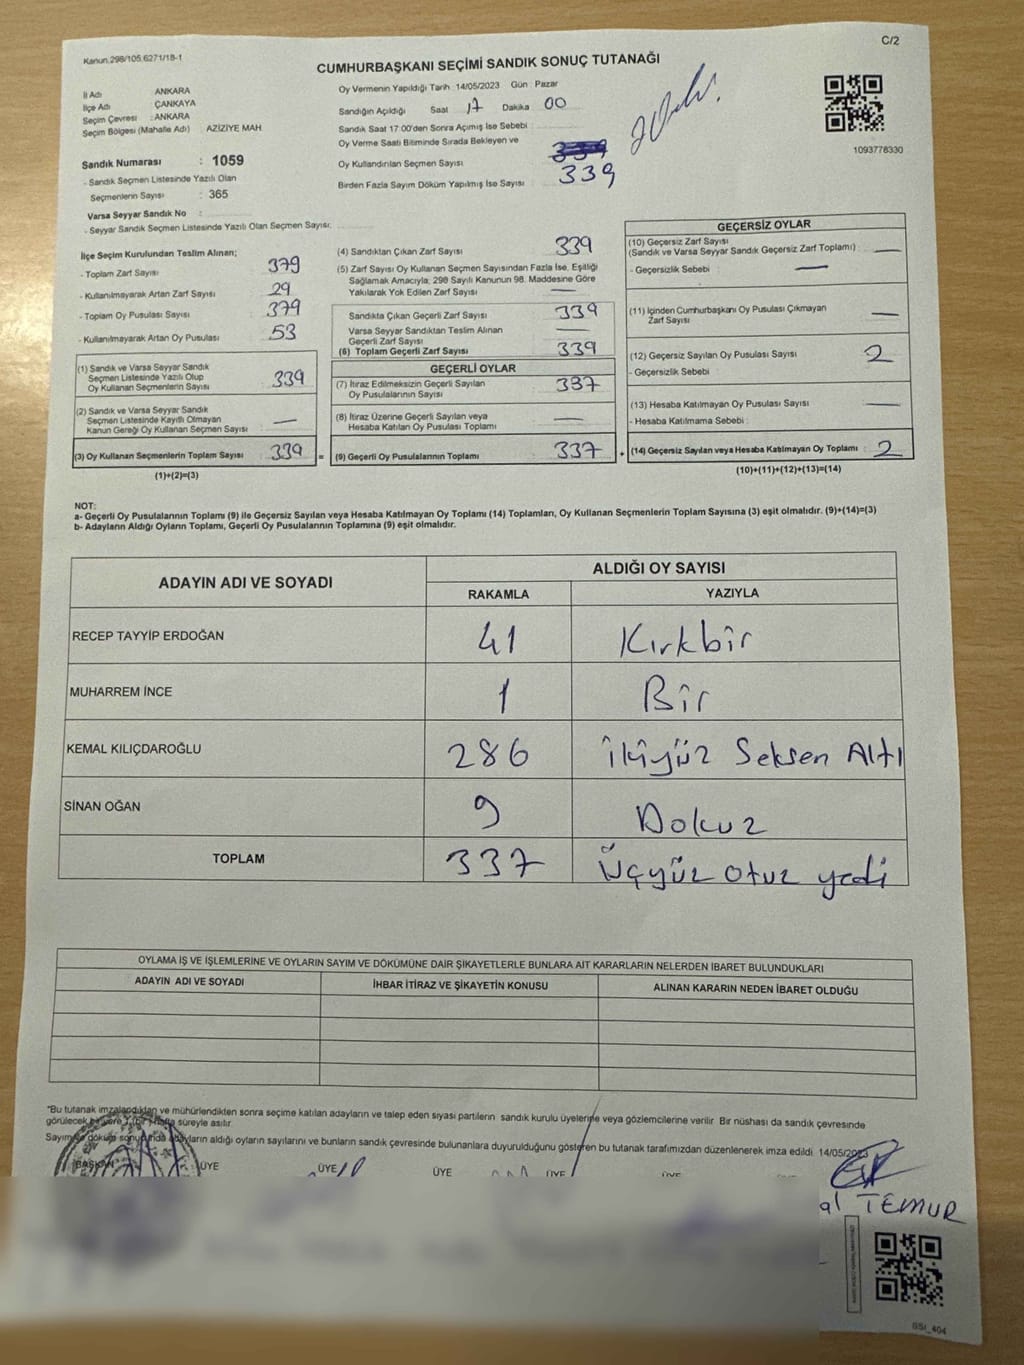 C/2
Kanun.298/105.6271/18-1
CUMHURBAŞKANI SEÇİMİ SANDIK SONUÇ TUTANAĞI
İl Adı ANKARA
İlçe Adı ÇANKAYA
Seçim Çevresi : ANKARA
Seçim Bölgesi (Mahalle Adı) AZİZİYE MAH.
Sandık Numarası : 1059
- Sandık Seçmen Listesinde Yazılı Olan
Seçmenlerin Sayısı : 365
Varsa Seyyar Sandık No :
- Seyyar Sandık Seçmen Listesinde Yazılı Olan Seçmen Sayısı:
Oy Vermenin Yapıldığı Tarih 14/05/2023 Gün : Pazar
Sandığın Açıldığı Saat 17 Dakika 00
Sandık Saat 17:00'den Sonra Açımış İse Sebebi :
Oy Verme Saati Bitiminde Sırada Bekleyen ve
Oy Kullandırılan Seçmen Sayısı 339
Birden Fazla Sayım Döküm Yapılmış İse Sayısı
1093778330
İlçe Seçim Kurulundan Teslim Alınan;
- Toplam Zarf Sayısı 379
- Kullanılmayarak Artan Zarf Sayısı 29
- Toplam Oy Pusulası Sayısı 379
- Kullanılmayarak Artan Oy Pusulası 53
(1) Sandık ve Varsa Seyyar Sandık
Seçmen Listesinde Yazılı Olup
Oy Kullanan Seçmenlerin Sayısı 339
(2) Sandık ve Varsa Seyyar Sandık
Seçmen Listesinde Kayıtlı Olmayan
Kanun Gereği Oy Kullanan Seçmen Sayısı : —
(3) Oy Kullanan Seçmenlerin Toplam Sayısı : 339 =
(1)+(2)=(3)
(4) Sandıktan Çıkan Zarf Sayısı 339
(5) Zarf Sayısı Oy Kullanan Seçmen Sayısından Fazla İse, Eşitliği
Sağlamak Amacıyla; 298 Sayılı Kanunun 98. Maddesine Göre
Yakılarak Yok Edilen Zarf Sayısı —
Sandıkta Çıkan Geçerli Zarf Sayısı 339
Varsa Seyyar Sandıktan Teslim Alınan
Geçerli Zarf Sayısı —
(6) Toplam Geçerli Zarf Sayısı 339
GEÇERLİ OYLAR
(7) İtiraz Edilmeksizin Geçerli Sayılan
Oy Pusulalarının Sayısı 337
(8) İtiraz Üzerine Geçerli Sayılan veya
Hesaba Katılan Oy Pusulası Toplamı —
(9) Geçerli Oy Pusulalarının Toplamı : 337 +
GEÇERSİZ OYLAR
(10) Geçersiz Zarf Sayısı
(Sandık ve Varsa Seyyar Sandık Geçersiz Zarf Toplamı) : —
- Geçersizlik Sebebi : —
(11) İçinden Cumhurbaşkanı Oy Pusulası Çıkmayan
Zarf Sayısı —
(12) Geçersiz Sayılan Oy Pusulası Sayısı : 2
- Geçersizlik Sebebi :
(13) Hesaba Katılmayan Oy Pusulası Sayısı : —
- Hesaba Katılmama Sebebi :
(14) Geçersiz Sayılan veya Hesaba Katılmayan Oy Toplamı : 2
(10)+(11)+(12)+(13)=(14)
NOT:
a- Geçerli Oy Pusulalarının Toplamı (9) ile Geçersiz Sayılan veya Hesaba Katılmayan Oy Toplamı (14) Toplamları, Oy Kullanan Seçmenlerin Toplam Sayısına (3) eşit olmalıdır. (9)+(14)=(3)
b- Adayların Aldığı Oyların Toplamı, Geçerli Oy Pusulalarının Toplamına (9) eşit olmalıdır.
ADAYIN ADI VE SOYADI ALDIĞI OY SAYISI
RAKAMLA YAZIYLA
RECEP TAYYİP ERDOĞAN 41 Kırkbir
MUHARREM İNCE 1 Bir
KEMAL KILIÇDAROĞLU 286 İkiyüz Seksen Altı
SİNAN OĞAN 9 Dokuz
TOPLAM 337 Üçyüz otuz yedi
OYLAMA İŞ VE İŞLEMLERİNE VE OYLARIN SAYIM VE DÖKÜMÜNE DAİR ŞİKAYETLERLE BUNLARA AİT KARARLARIN NELERDEN İBARET BULUNDUKLARI
ADAYIN ADI VE SOYADI İHBAR İTİRAZ VE ŞİKAYETİN KONUSU ALINAN KARARIN NEDEN İBARET OLDUĞU
"Bu tutanak imzalandıktan ve mühürlendikten sonra seçime katılan adayların ve talep eden siyasi partilerin sandık kurulu üyelerine veya gözlemcilerine verilir Bir nüshası da sandık çevresinde
görülecek bir yere 1 (bir) hafta süreyle asılır.
Sayım ve döküm sonucunda adayların aldığı oyların sayılarını ve bunların sandık çevresinde bulunanlara duyurulduğunu gösteren bu tutanak tarafımızdan düzenlenerek imza edildi. 14/05/2023
BAŞKAN ÜYE ÜYE ÜYE ÜYE
TEMUR